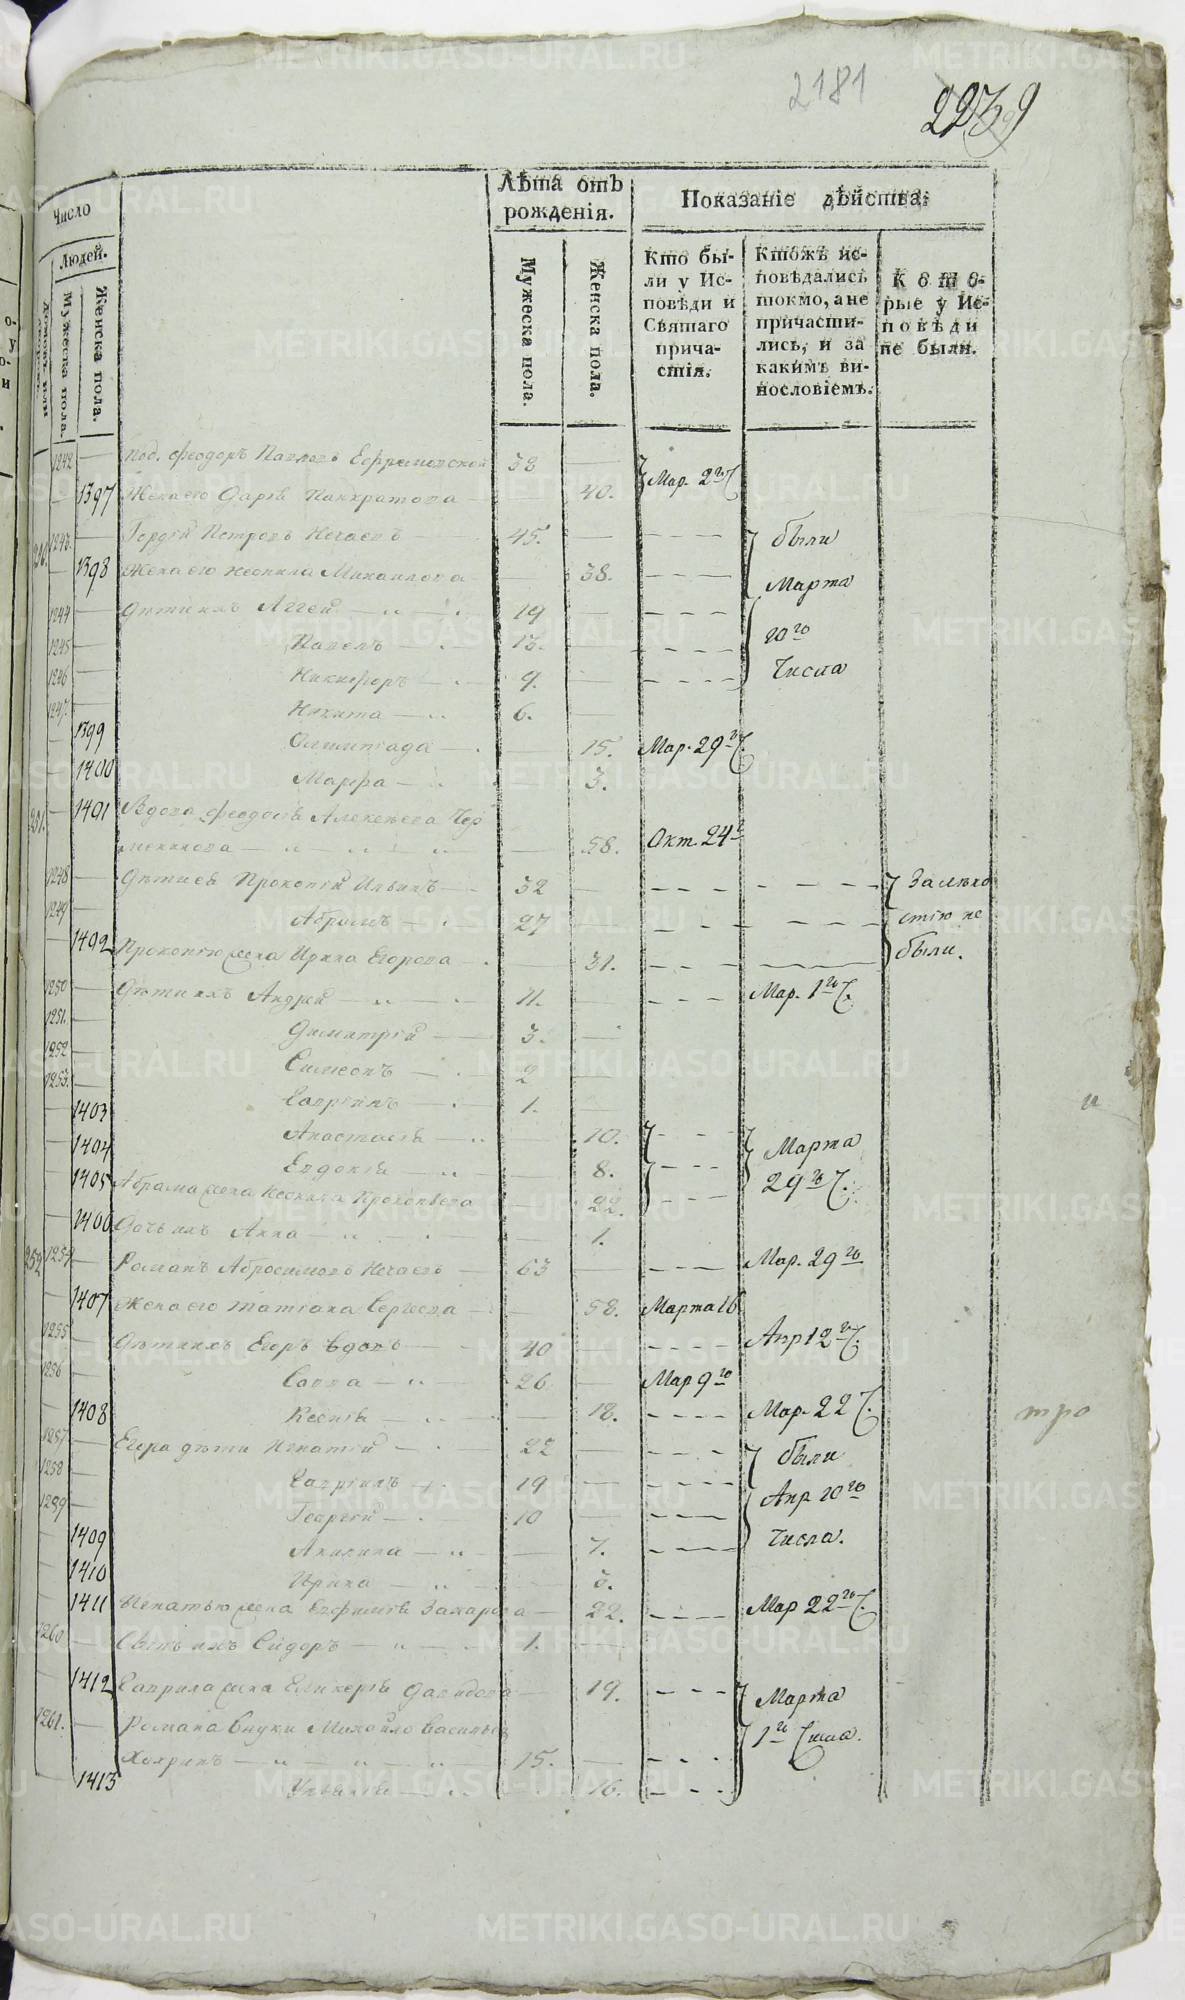 2181
2239
Число
Людей.
Мужеска пола.
Женска пола.
Лѣта отъ рожденія.
Мужеска пола.
Женска пола.
Показаніе дѣйства:
Кто бы-
ли у Ис-
повѣди и
Святаго
прича-
стія.
Ктожъ ис-
повѣдались
токмо, а не
причасти-
лись, и за
какимъ ви-
нословіемъ.
Кото-
рые у Ис-
повѣди
не были.
1242 — Под. Феодоръ Павловъ 38 —
1397 Жена его Дарія Панкратова — 40. Мар. 23 Ч
1243. — Гордѣй Петровъ Нечаевъ 45. — были
1398 Жена его Неонила Михайлова — 38. Марта
1244 — Дѣти ихъ Аггей 19 — 20 го
1245 — Павелъ 13. —
1246 — Никифоръ 9. — Числа
1247. — Никита 6. —
1399 Олимпіада — 15. Мар. 29 го Ч.
1400 Марфа — 3.
251. 1401 Вдова Феодосья Алексѣева Чер
меннова — 58. Окт. 24
1248 — Дѣти ея Прокопій Ильинъ 32 — За
1249 — Абрамъ 27 — стію не
1402 Прокопію жена Ирина Егорова — 31. были.
1250 — Дѣти ихъ Андрей 11. — Мар. 1 го Ч.
1251. — Димитрій 3. —
1252 — Симеонъ 2 —
1253. — Гавріилъ 1. —
1403 Анастасія — 10. Марта
1404 Евдокія — 8.
1405 Абрама жена Неонила Прокопьева — 22. 29 го Ч.
1406 Дочь ихъ Анна — 1.
252 1254 — Романъ Абросимовъ Нечаевъ 63 — Мар. 29 го
1407 Жена его Татіана Сергѣева — 58. Марта 16
1255 — Дѣти ихъ Егоръ вдовъ 40 — Апр 12 го Ч.
1256 — Савва 26 — Мар 9 го
1408 Ксенія — 18. Мар. 22 Ч.
1257 — Егора дѣти Игнатій 22 — были
1258 — Гавріилъ 19 — Апр 20 го
1259 — Георгій 10 —
1409 Акилина — 7. числа.
1410 Ирина — 3.
1411 Игнатью жена Евфимія Захарова — 22. Мар 22 го Ч.
1260 — Сынъ ихъ Сидоръ 1. —
1412 Гаврила жена Гликерія Давидова — 19. Марта
1261. — Романа внуки Михайло Васильевъ 1 го Числа.
15. —
1413 — 16.
METRIKI.GASO-URAL.RU